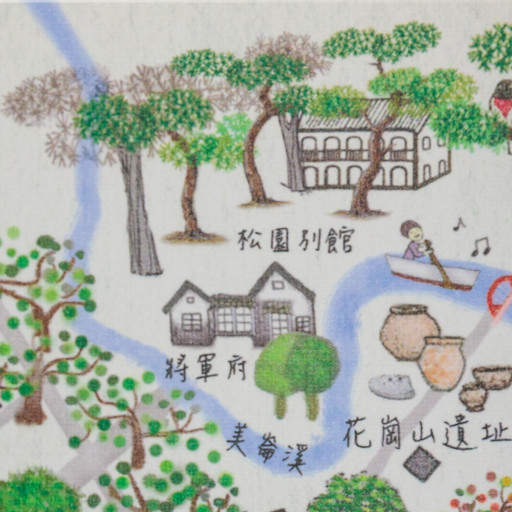 松園別館
將軍府
美崙溪
花崗山遺址